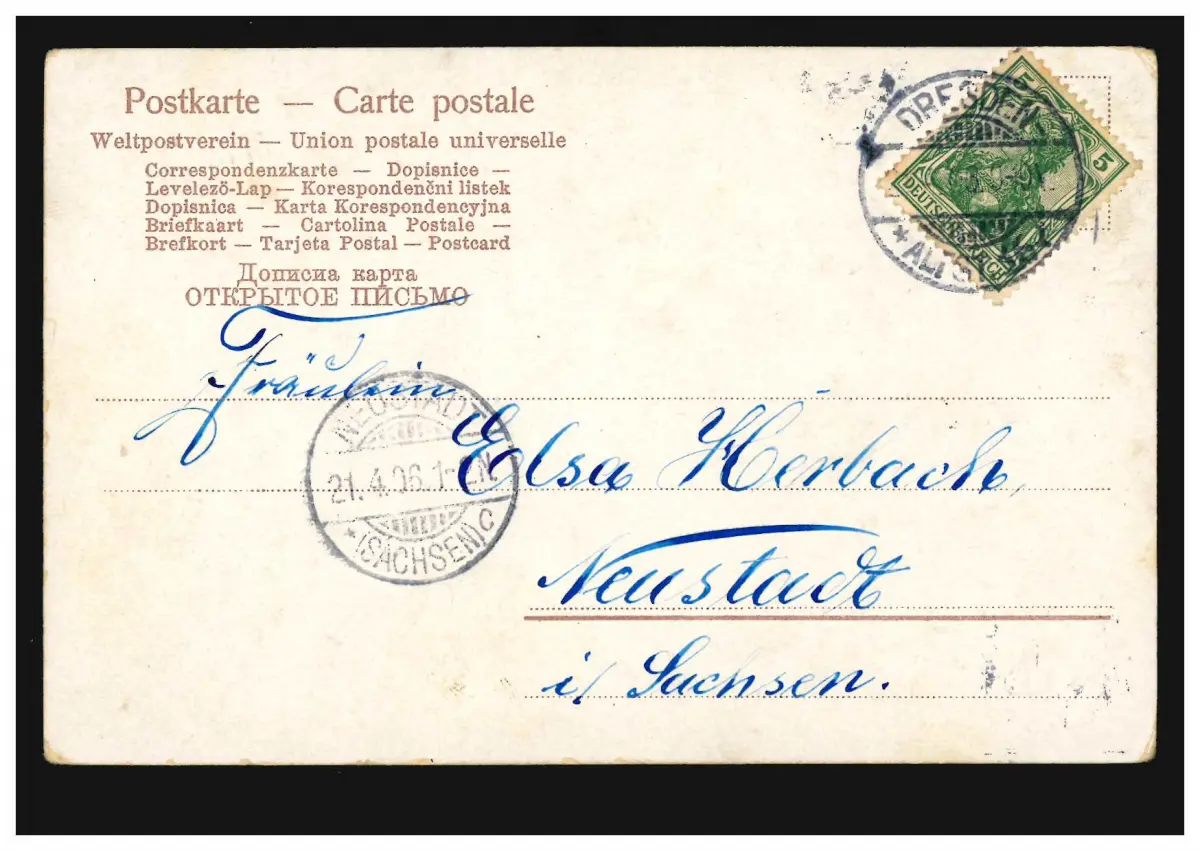 Postkarte — Carte postale
Weltpostverein — Union postale universelle
Correspondenzkarte — Dopisnice —
Levelező-Lap — Korespondenčni listek
Dopisnica — Karta Korespondencyjna
Briefkaart — Cartolina Postale —
Brefkort — Tarjeta Postal — Postcard
Дописна карта
ОТКРЫТОЕ ПИСЬМО
DRESDEN
*ALTST.
5
5
DEUTSCHES REICH
Fräulein
Elsa Herbach,
Neustadt
i/ Sachsen.
NEUSTADT
21.4.06.1-2N.
*(SACHSEN)C